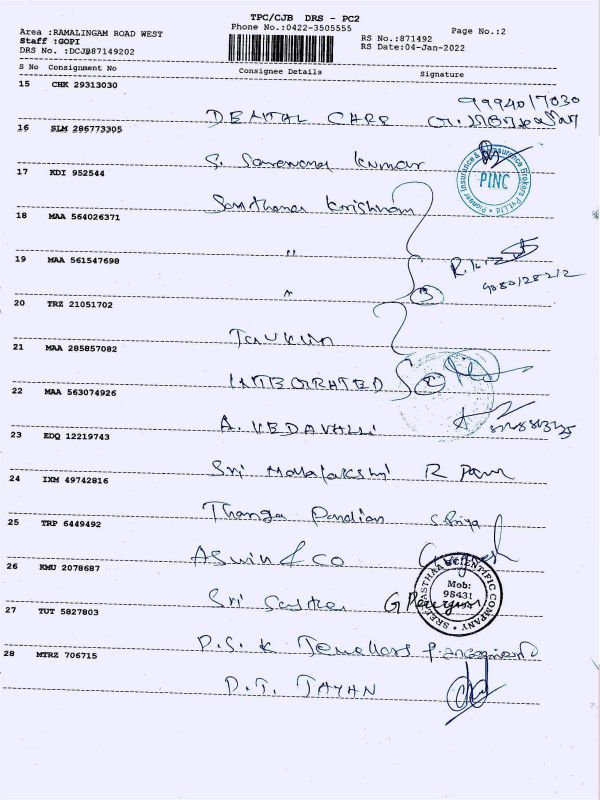 TPC/CJB DRS - PC2
Area :RAMALINGAM ROAD WEST
Phone No.:0422-3505555
Page No.:2
Staff :GOPI
RS No.:871492
DRS No. :DCJB87149202
RS Date:04-Jan-2022
S No Consignment No Consignee Details Signature
15 CHK 29313030
DENTAL CARE 9994017030
16 SLM 286773305
S. Saravana Kumar
PINC
Pioneer Insurance & Reinsurance Brokers Pvt.Ltd
17 KDI 952544
Santhana Krishnan
18 MAA 564026371
"
19 MAA 561547698
" 3
20 TRZ 21051702
21 MAA 285857082
INTEGRATED 2
22 MAA 563074926
A. VEDAVALLI
23 EDQ 12219743
Sri Mahalakshmi
24 IXM 49742816
Thanga Pandian S. Priya
25 TRP 6449492
ASwin & CO
26 KMU 2078687
Sri Sastha
SREE SASTHAA SCIENTIFIC COMPANY
Mob:
98431
27 TUT 5827803
D.S.K Jewellers
28 MTRZ 706715
D.T.